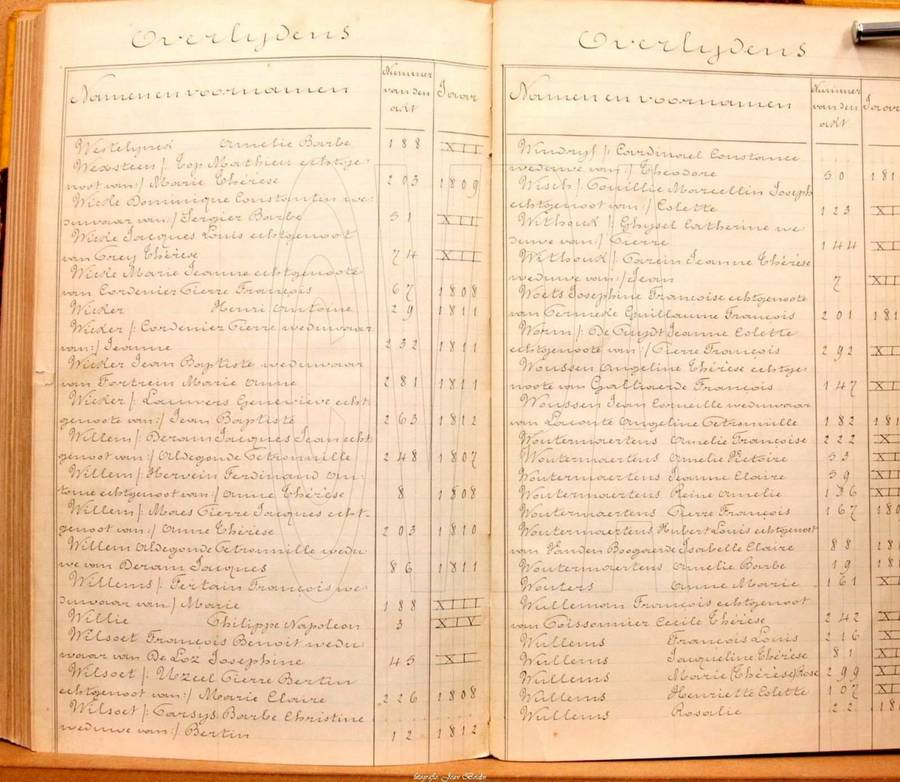 Overlijdens
Namen en voornamen
Nummer van den akt
Jaar
Westelynck Amelie Barbe 188 XII
Weksteen /: Top Mathieu echtge-
noot van :/ Marie Thérèse 203 1809
Wicke Dominique Constantin we-
duwaar van :/ Sergier Barbe 51 XII
Wicke Jacques Louis echtgenoot
van Crey Thérèse 74 XII
Wicke Marie Jeanne echtgenoote
van Cordenier Pierre François 67 1808
Wicker Henri Antoine 29 1811
Wicker /: Cordenier Pierre weduwaar
van :/ Jeanne 232 1811
Wicker Jean Baptiste weduwaar
van Fortrein Marie Anne 281 1811
Wicker /: Lauwers Geneviève echt-
genoote van :/ Jean Baptiste 263 1812
Willem /: Deram Jacques Jean echt
genoot van :/ Aldegonde Petronnille 248 1807
Willem /: Hervein Ferdinand An-
toine echtgenoot van :/ Anne Thérèse 8 1808
Willem /: Maes Pierre Jacques echt-
genoot van :/ Anne Thérèse 203 1810
Willem Aldegonde Petronnille wedu
we van Deram Jacques 86 1811
Willems /: Tertain François we-
duwaar van :/ Marie 188 XIII
Willie Philippe Napoleon 3 XIV
Wilsoet François Benoit wedu-
waar van De Loz Josephine 45 XII
Wilsoet /: Uzeel Pierre Bertin
echtgenoot van :/ Marie Claire 226 1808
Wilsoet /: Carsys Barbe Christine
weduwe van :/ Bertin 12 1812
Overlijdens
Namen en voornamen
Nummer van den akt
Jaar
/: Cardinael Constance
weduwe van :/ Theodore 50 181
Wisch /: Couillie Marcellin Joseph
echtgenoot van :/ Colette 123 XI
Withouck /: Ghysel Catherine we
duwe van :/ Pierre 144 XI
Withouck /: Carein Jeanne Thérèse
weduwe van :/ Jean 7 XII
Woets Josephine Françoise echtgenoote
van Cermeke Guillaume François 201 181
Worm /: De Cuydt Jeanne Colette
echtgenoote van :/ Pierre François 292 XI
Woussen Angeline Thérèse echtge-
noote van Galliaerde François 147 XI
Woussen Jean Corneille weduwaar
van Laconte Angeline Petronnille 182 181
Woutermaertens Amelie Françoise 222 X
Woutermaertens Amelie Victoire 53 XI
Woutermaertens Jeanne Claire 59 XI
Woutermaertens Reine Amelie 136 XII
Woutermaertens Pierre François 167 180
Woutermaertens Hubert Louis echtgenoot
van Vanden Boogaerde Isabelle Claire 88 181
Woutermaertens Amelie Barbe 19 181
Wouters Anne Marie 161 X
Wulleman François echtgenoot
van Poissonnier Cecile Thérèse 242 X
Wullems François Louis 216 X
Wullems Jacqueline Thérèse 81 X
Wullems Marie (Thérèse) Rose 299 X
Wullems Henriette Colette 107 XI
Wullems Rosalie 22 18
fotografie Jean Boidin